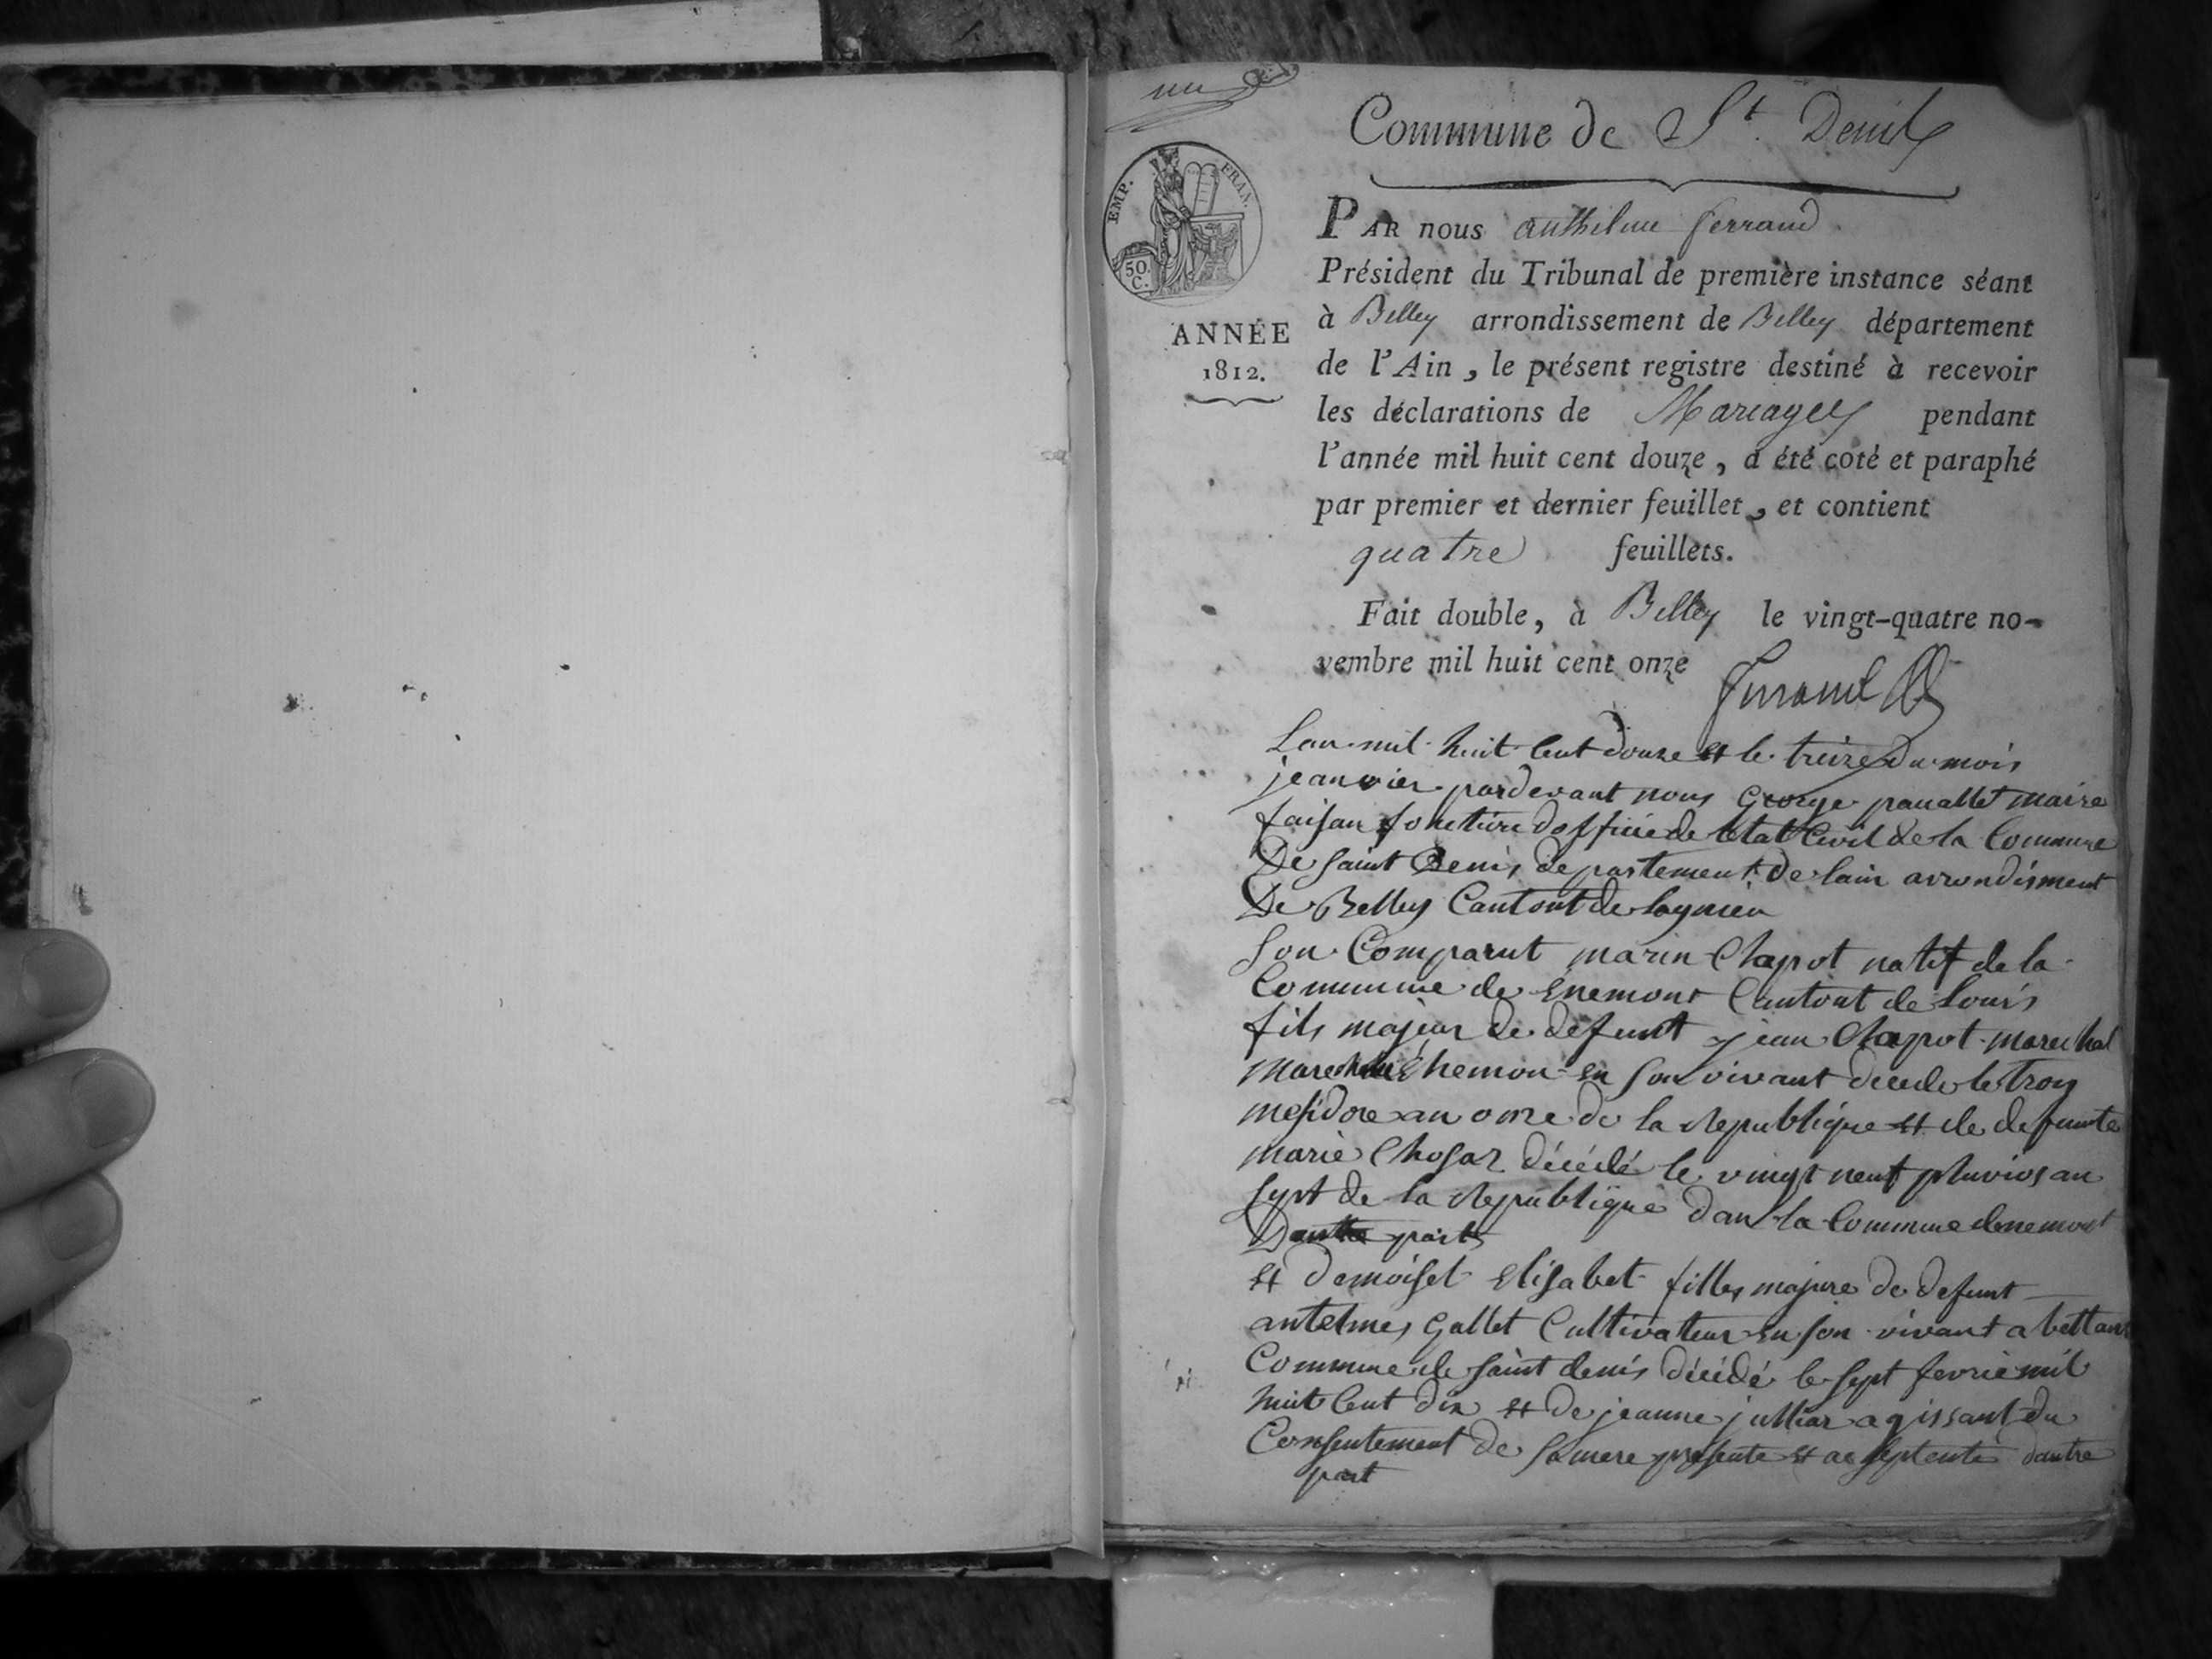 un
Commune de St. Denis
EMP. FRAN.
50. C.
ANNÉE
1812.
PAR nous anthelme ferrand
Président du Tribunal de première instance séant
à Belley arrondissement de Belley département
de l'Ain, le présent registre destiné à recevoir
les déclarations de Mariages pendant
l'année mil huit cent douze, a été coté et paraphé
par premier et dernier feuillet, et contient
quatre feuillets.
Fait double, à Belley le vingt-quatre no-
vembre mil huit cent onze
ferrand
Lan mil huit Cent douze et le treize du mois
jeanvier pardevant nous George panallet maire
faisan de letat Civil de la Commune
De Saint Denis departement de lain arrondisment
De Belley Cantont de lagnieu
Son Comparut marin Chapot natif de la
Commune de Enemont Cantont de
fils majeur de defunt jean Chapot marechal
en son vivant decede le troy
mesidore an onze de la Republique et de defunte
marie Chosaz décédé le vingt neuf pluvios an
sept de la Republique dans la Commune denemont
Dautre part
et demoisel Elisabet filles majure de defunt
antelmes Gallet Cultivateur en son vivant a bettan
Commune de Saint denis décédé le sept fevrié mil
huit Cent dix et de jeanne julliar agissant du
Consentement de sa mere presente et aceptente dautre
part